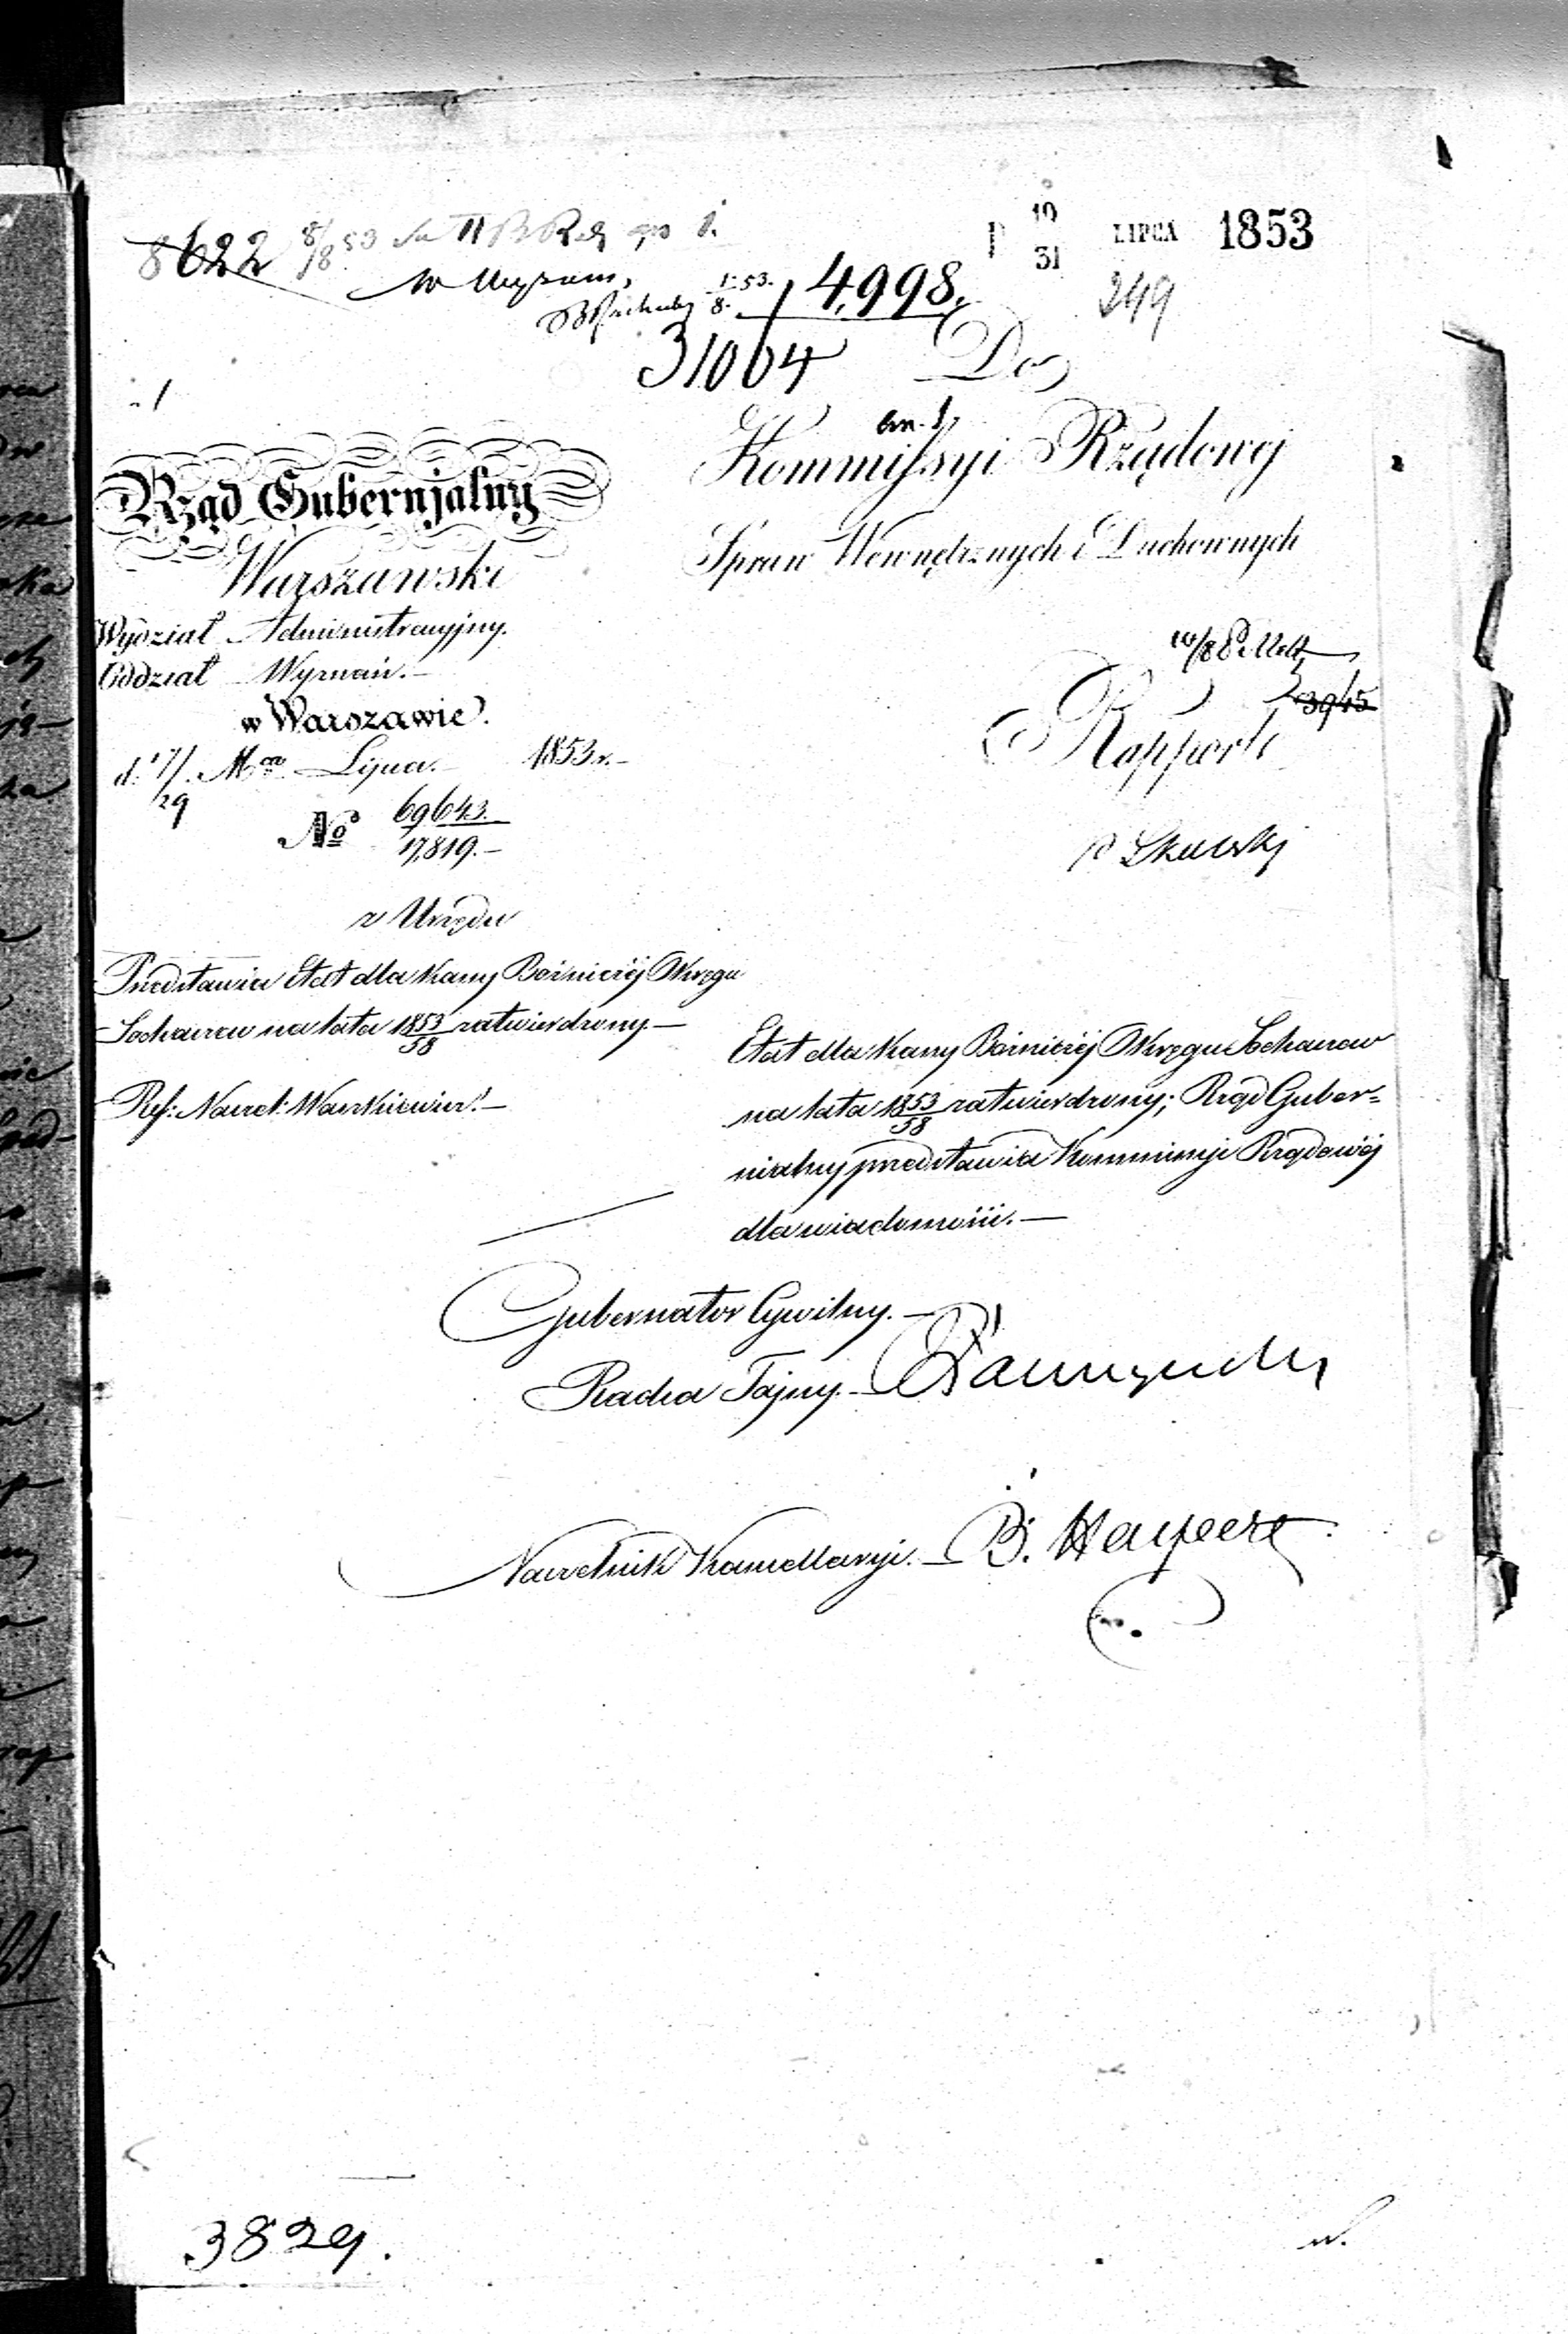 8622 8/8 53
19/31 LIPCA 1853
249
1:53./8. 14,998.
31064
Do
Kommissyi Rządowej
Spraw Wewnętrznych i Duchownych
Rząd Gubernjalny
Warszawski
Wydział Administracyjny.
Oddział Wyznań.—
w Warszawie.
d. 17/29 Mca Lipca.— 1853 r.—
No 69643./17,819.—
3945
Rapport
z Urzędu
Przedstawia Etat dla Kassy Bożniczéj Okręgu
Sochaczew na lata 1853/58 zatwierdzony.—
Ref: Naczel: Wawrkiewicz.—
Etat dla Kassy Bożniczéj Okręgu Sochaczew
na lata 1853/58 zatwierdzony; Rząd Guber=
nialny przedstawia Kommissyi Rządowéj
dla wiadomości.—
Gubernator Cywilny.—
Radca Tajny.—
Naczelnik Kancellaryi.— B. Halpert
3829.